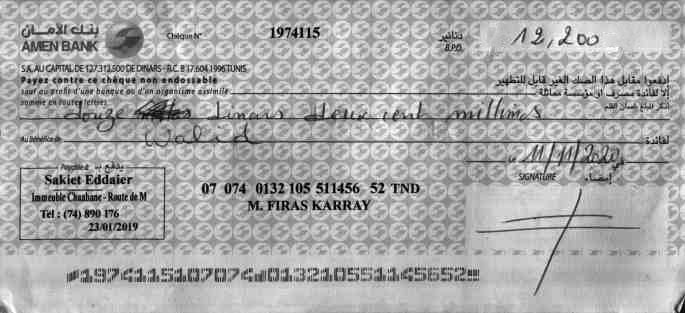 بنك الأمان
AMEN BANK
Chèque N° 1974115
دنانير
B.P.D. 12,200
S.A. AU CAPITAL DE 127.312.500 DE DINARS - R.C. B 17.604 1996 TUNIS
Payez contre ce chèque non endossable
sauf au profit d'une banque ou d'un organisme assimilé
somme en toutes lettres
ادفعوا مقابل هذا الصك الغير قابل للتظهير
إلا لفائدة مصرف او مؤسسة مماثلة
douze dinars deux cent millimes
Au Bénéfice de Walid لفائدة
Le 11/11/2020 في
SIGNATURE إمضاء
Payable à يدفع بـ
Sakiet Eddaier
Immeuble Chaabane - Route de M
Tél : (74) 890 176
23/01/2019
07 074 0132 105 511456 52 TND
M. FIRAS KARRAY
1974115107074 0132105511145652